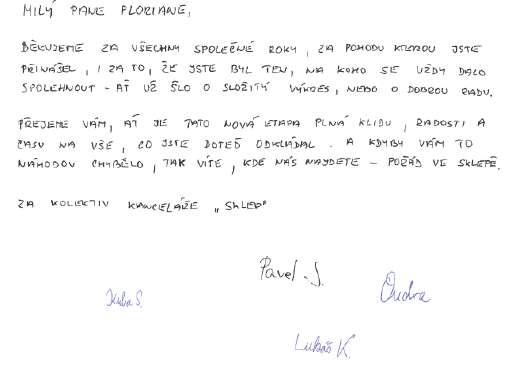 MILÝ PANE FLORIANE,
DĚKUJEME ZA VŠECHNY SPOLEČNÉ ROKY, ZA POHODU KTEROU JSTE
PŘINÁŠEL, I ZA TO, ŽE JSTE BYL TEN, NA KOHO SE VŽDY DALO
SPOLEHNOUT - AŤ UŽ ŠLO O SLOŽITÝ VÝKRES, NEBO O DOBROU RADU.
PŘEJEME VÁM, AŤ JE TATO NOVÁ ETAPA PLNÁ KLIDU, RADOSTI A
ČASU NA VŠE, CO JSTE DOTEĎ ODKLÁDAL. A KDYBY VÁM TO
NÁHODOU CHYBĚLO, TAK VÍTE, KDE NÁS NAJDETE - POŘÁD VE SKLEPĚ.
ZA KOLEKTIV KANCELÁŘE „SKLEP“
Pavel J.
Kuba S.
Ondra
Lukáš K.